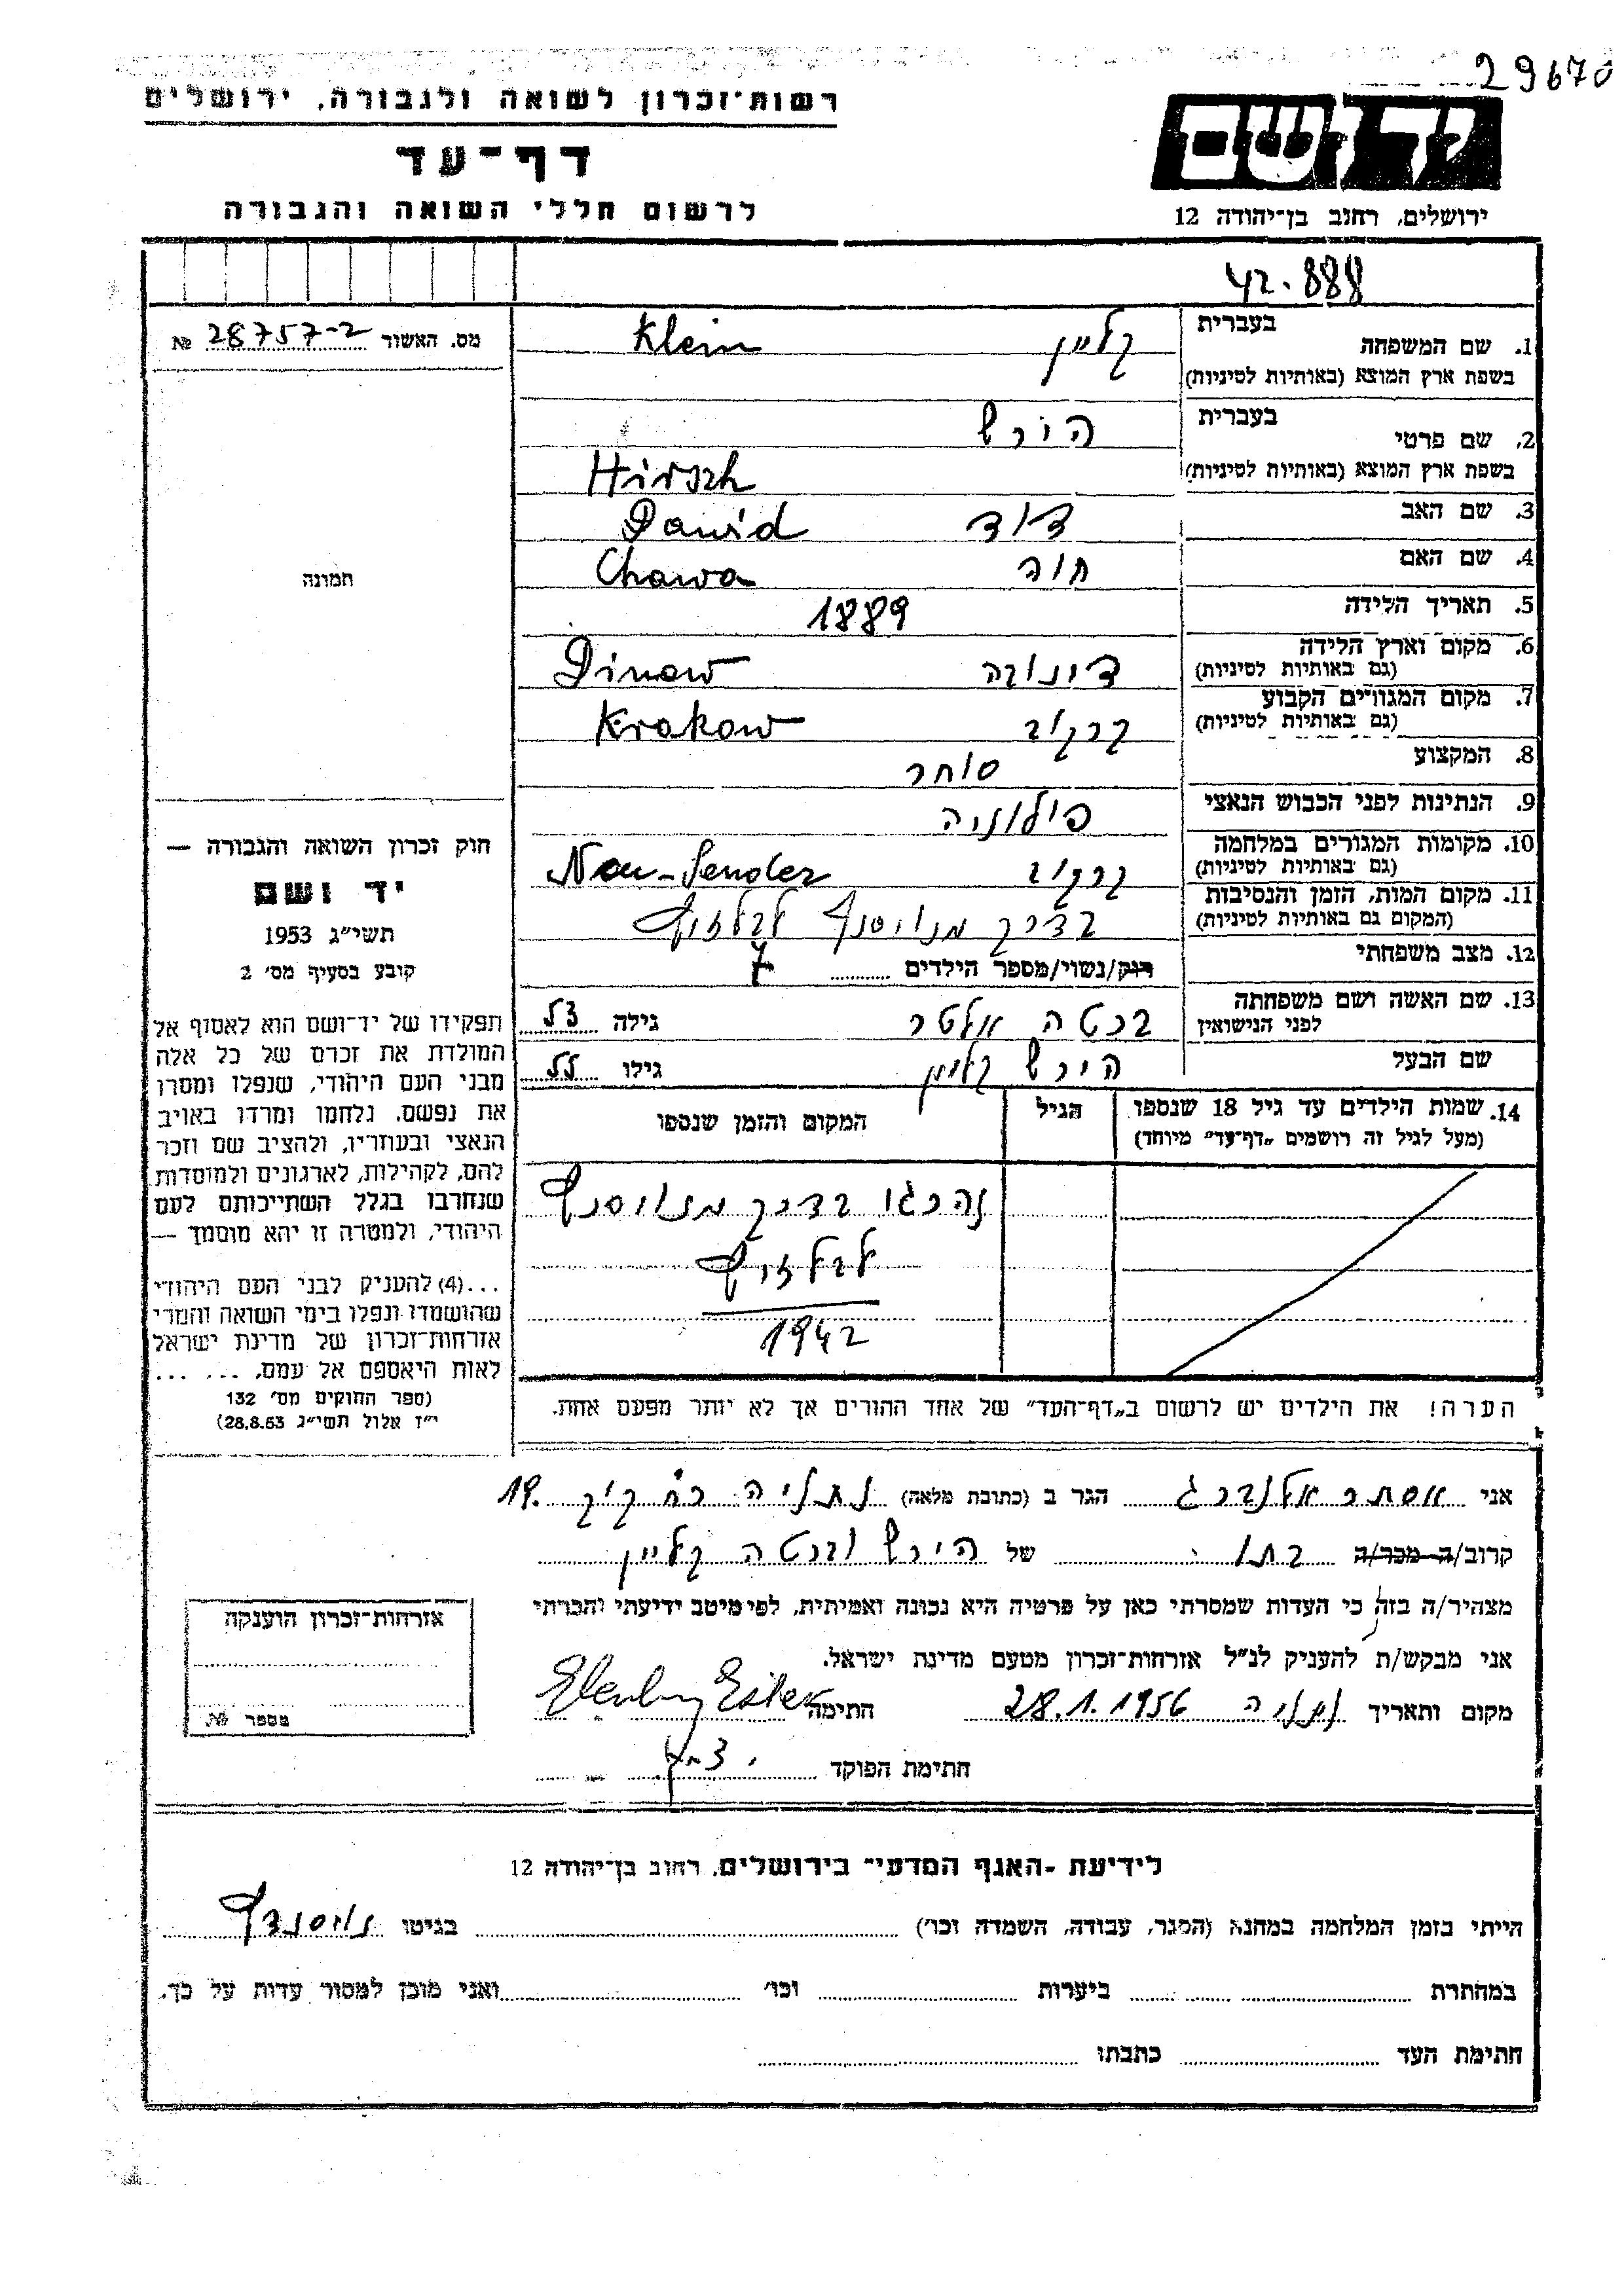 29670
רשות־זכרון לשואה ולגבורה, ירושלים
דף־עד
לרשום חללי השואה והגבורה
יד ושם
ירושלים, רחוב בן־יהודה 12
42.888
מס. האשור 28757-2 №
תמונה
חוק זכרון השואה והגבורה —
יד ושם
תשי״ג 1953
קובע בסעיף מס׳ 2
תפקידו של יד־ושם הוא לאסוף אל
המולדת את זכרם של כל אלה
מבני העם היהודי, שנפלו ומסרו
את נפשם, נלחמו ומרדו באויב
הנאצי ובעוזריו, ולהציב שם וזכר
להם, לקהילות, לארגונים ולמוסדות
שנחרבו בגלל השתייכותם לעם
היהודי, ולמטרה זו יהא מוסמך —
...(4) להעניק לבני העם היהודי
שהושמדו ונפלו בימי השואה והמרי
אזרחות־זכרון של מדינת ישראל
לאות היאספם אל עמם. ... ...
(ספר החוקים מס׳ 132
י״ז אלול תשי״ג 28.8.53)
1. שם המשפחה
בעברית קליין Klein
בשפת ארץ המוצא (באותיות לטיניות)
2. שם פרטי
בעברית הירש
בשפת ארץ המוצא (באותיות לטיניות) Hirszh
3. שם האב דוד Dawid
4. שם האם חוה Chawa
5. תאריך הלידה 1889
6. מקום וארץ הלידה דינובה Dinow
(גם באותיות לטיניות)
7. מקום המגורים הקבוע קרקוב Krakow
(גם באותיות לטיניות)
8. המקצוע סוחר
9. הנתינות לפני הכבוש הנאצי פילוניה
10. מקומות המגורים במלחמה קרקוב Nou-Sender
(גם באותיות לטיניות)
11. מקום המות, הזמן והנסיבות בדרך מנויסנץ לבלזיץ
(המקום גם באותיות לטיניות)
12. מצב משפחתי רוק/נשוי/מספר הילדים 7
13. שם האשה ושם משפחתה ברטה אלטר גילה 53
לפני הנישואין
שם הבעל הירש קליין גילו 55
14. שמות הילדים עד גיל 18 שנספו
(מעל לגיל זה רושמים „דף־עד״ מיוחד)
הגיל
המקום והזמן שנספו
נהרגו בדרך מנויסנץ
לבלזיץ
1942
הערה! את הילדים יש לרשום ב„דף־העד״ של אחד ההורים אך לא יותר מפעם אחת.
אני אסתר אלנברג הגר ב (כתובת מלאה) נתניה רח קיק 19.
קרוב/ה מכר/ה בתו של הירש וברטה קליין
מצהיר/ה בזה כי העדות שמסרתי כאן על פרטיה היא נכונה ואמיתית, לפי מיטב ידיעתי והכרתי
אני מבקש/ת להעניק לנ״ל אזרחות־זכרון מטעם מדינת ישראל.
מקום ותאריך נתניה 28.1.1956 חתימה Elenberg Ester
חתימת הפוקד
אזרחות־זכרון הוענקה
מספר №
לידיעת -האגף המדעי- בירושלים, רחוב בן־יהודה 12
הייתי בזמן המלחמה במחנה (הסגר, עבודה, השמדה וכו׳) בגיטו נויסנדץ
במחתרת ביערות וכו׳ ואני מוכן למסור עדות על כך.
חתימת העד כתבתו